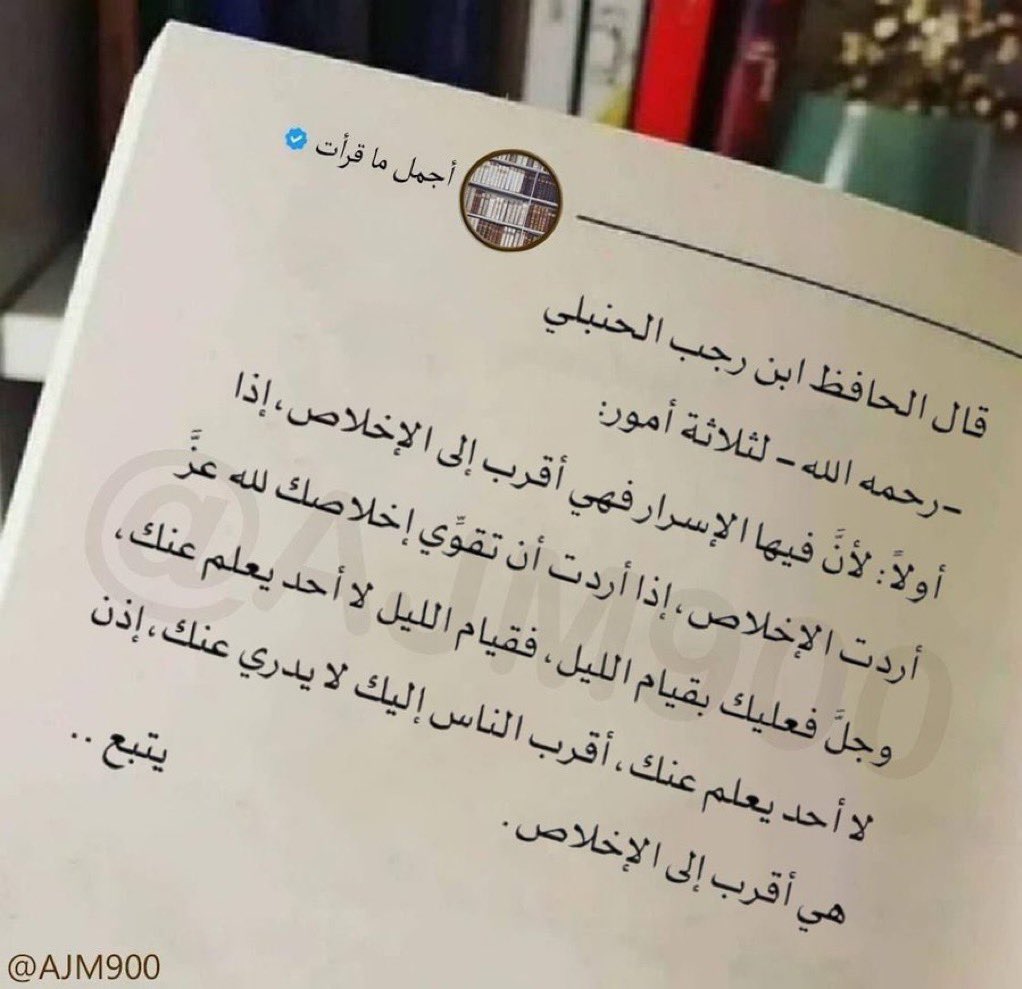 أجمل ما قرأت
قال الحافظ ابن رجب الحنبلي
-رحمه الله- لثلاثة أمور:
أولاً: لأنَّ فيها الإسرار فهي أقرب إلى الإخلاص، إذا
أردت الإخلاص، إذا أردت أن تقوِّي إخلاصك لله عزَّ
وجلَّ فعليك بقيام الليل، فقيام الليل لا أحد يعلم عنك،
لا أحد يعلم عنك، أقرب الناس إليك لا يدري عنك، إذن
هي أقرب إلى الإخلاص.
يتبع ..
@AJM900
@AJM900